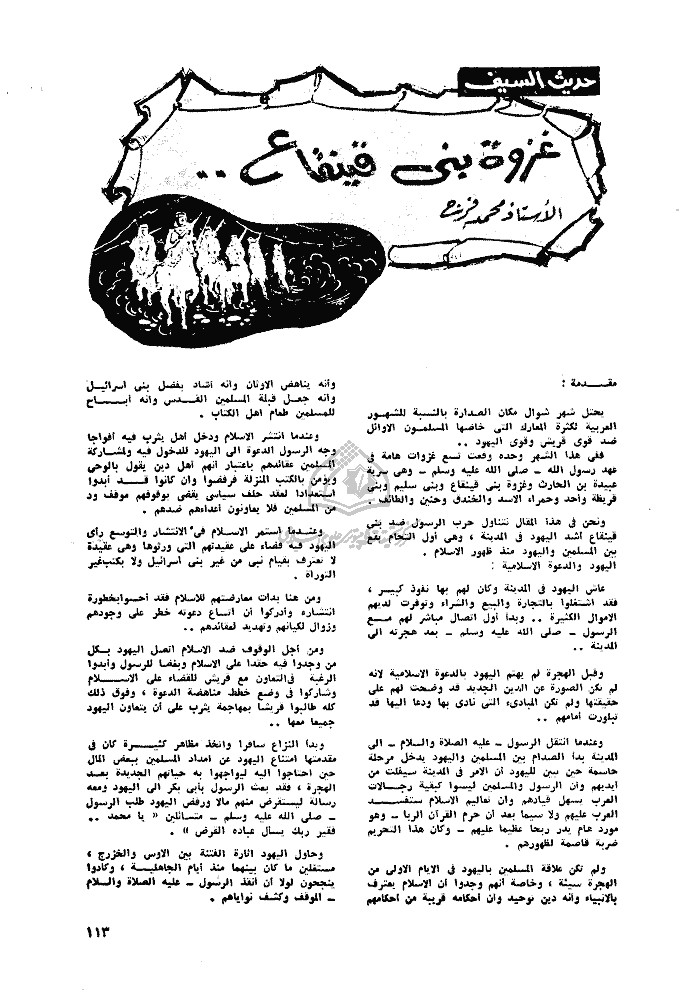 حديث السيف
غزوة بنى قينقاع ..
الأستاذ محمد فرج
مقـــدمة :
يحتل شهر شوال مكان الصدارة بالنسبة للشهور
العربية لكثرة المعارك التى خاضها المسلمون الاوائل
ضد قوى قريش وقوى اليهود ..
ففى هذا الشهر وحده وقعت تسع غزوات هامة فى
عهد رسول الله ـ صلى الله عليه وسلم ـ وهى سرية
عبيدة بن الحارث وغزوة بنى قينقاع وبنى سليم وبنى
قريظة وأحد وحمراء الاسد والخندق وحنين والطائف .
ونحن فى هذا المقال نتناول حرب الرسول ضد بنى
قينقاع أشد اليهود فى المدينة ، وهى أول التحام يقع
بين المسلمين واليهود منذ ظهور الاسلام .
اليهود والدعوة الاسلامية :
عاش اليهود فى المدينة وكان لهم بها نفوذ كبيـر ،
فقد اشتغلوا بالتجارة والبيع والشراء وتوفرت لديهم
الاموال الكثيرة .. وبدأ أول اتصال مباشر لهم مـــع
الرسول ـ صلى الله عليه وسلم ـ بعد هجرته الى
المدينة ..
وقبل الهجرة لم يهتم اليهود بالدعوة الاسلامية لانه
لم تكن الصورة عن الدين الجديد قد وضحت لهم على
حقيقتها ولم تكن المبادىء التى نادى بها ودعا اليها قد
تبلورت أمامهم ..
وعندما انتقل الرسول ـ عليه الصلاة والسلام ـ الى
المدينة بدأ الصدام بين المسلمين واليهود يدخل مرحلة
حاسمة حين تبين لليهود أن الامر فى المدينة سيفلت من
أيديهم وأن الرسول والمسلمين ليسوا كبقية رجـــالات
العرب يسهل قيادهم وان تعاليم الاسلام ستفســـد
العرب عليهم ولا سيما بعد أن حرم القرآن الربا ـ وهو
مورد عام يدر ربحا عظيما عليهم ـ وكان هذا التحريم
ضربة قاصمة لظهورهم .
ولم تكن علاقة المسلمين باليهود فى الايام الاولى من
الهجرة سيئة ، وخاصة أنهم وجدوا أن الاسلام يعترف
بالانبياء وأنه دين توحيد وأن أحكامه قريبة من أحكامهم
وأنه يناهض الاوثان وأنه أشاد بفضل بنى اسرائيـل
وأنه جعـل قبلة المسلمين القـدس وأنه أبـــاح
للمسلمين طعام أهل الكتاب .
وعندما انتشر الاسلام ودخل أهل يثرب فيه أفواجا
وجه الرسول الدعوة الى اليهود للدخول فيه ولمشاركة
المسلمين عقائدهم باعتبار أنهم أهل دين يقول بالوحى
ويؤمن بالكتب المنزلة فرفضوا وان كانوا قـــد أبدوا
استعدادا لعقد حلف سياسى يقضى بوقوفهم موقف ود
من المسلمين فلا يعاونون أعداءهم ضدهم .
وعندما استمر الاسـلام فى الانتشار والتوسع رأى
اليهود فيه قضاء على عقيدتهم التى ورثوها وهى عقيدة
لا تعترف بقيام نبى من غير بنى اسرائيل ولا بكتب غير
التوراة .
ومن هنا بدأت معارضتهم للاسلام فقد أحسوا بخطورة
انتشاره وأدركوا أن اتساع دعوته خطر على وجودهم
وزوال لكيانهم وتهديد لعقائدهم ..
ومن أجل الوقوف ضد الاسلام اتصل اليهود بـكل
من وجدوا فيه حقدا على الاسلام وبغضا للرسول وأبدوا
الرغبة فى التعاون مع قريش للقضاء على الاســـلام
وشاركوا فى وضع خطط مناهضة الدعوة ، وفوق ذلك
كله طالبوا قريشا بمهاجمة يثرب على أن يتعاون اليهود
جميعا معها ..
وبدأ النزاع سافرا واتخذ مظاهر كثيـــرة كان فى
مقدمتها امتناع اليهود عن امداد المسلمين ببعض المال
حين احتاجوا اليه ليواجهوا به حياتهم الجديدة بعـد
الهجرة ، فقد بعث الرسول بأبى بكر الى اليهود ومعه
رسالة ليستقرض منهم مالا ورفض اليهود طلب الرسول
ـ صلى الله عليه وسلم ـ متسائلين « يا محمد ..
فقير ربك يسأل عباده القرض » .
وحاول اليهود اثارة الفتنة بين الاوس والخزرج ،
مستغلين ما كان بينهما منذ أيام الجاهليـة ، وكادوا
ينجحون لولا أن أنقذ الرسول ـ عليه الصلاة والسلام
ـ الموقف وكشف نواياهم .
١١٣